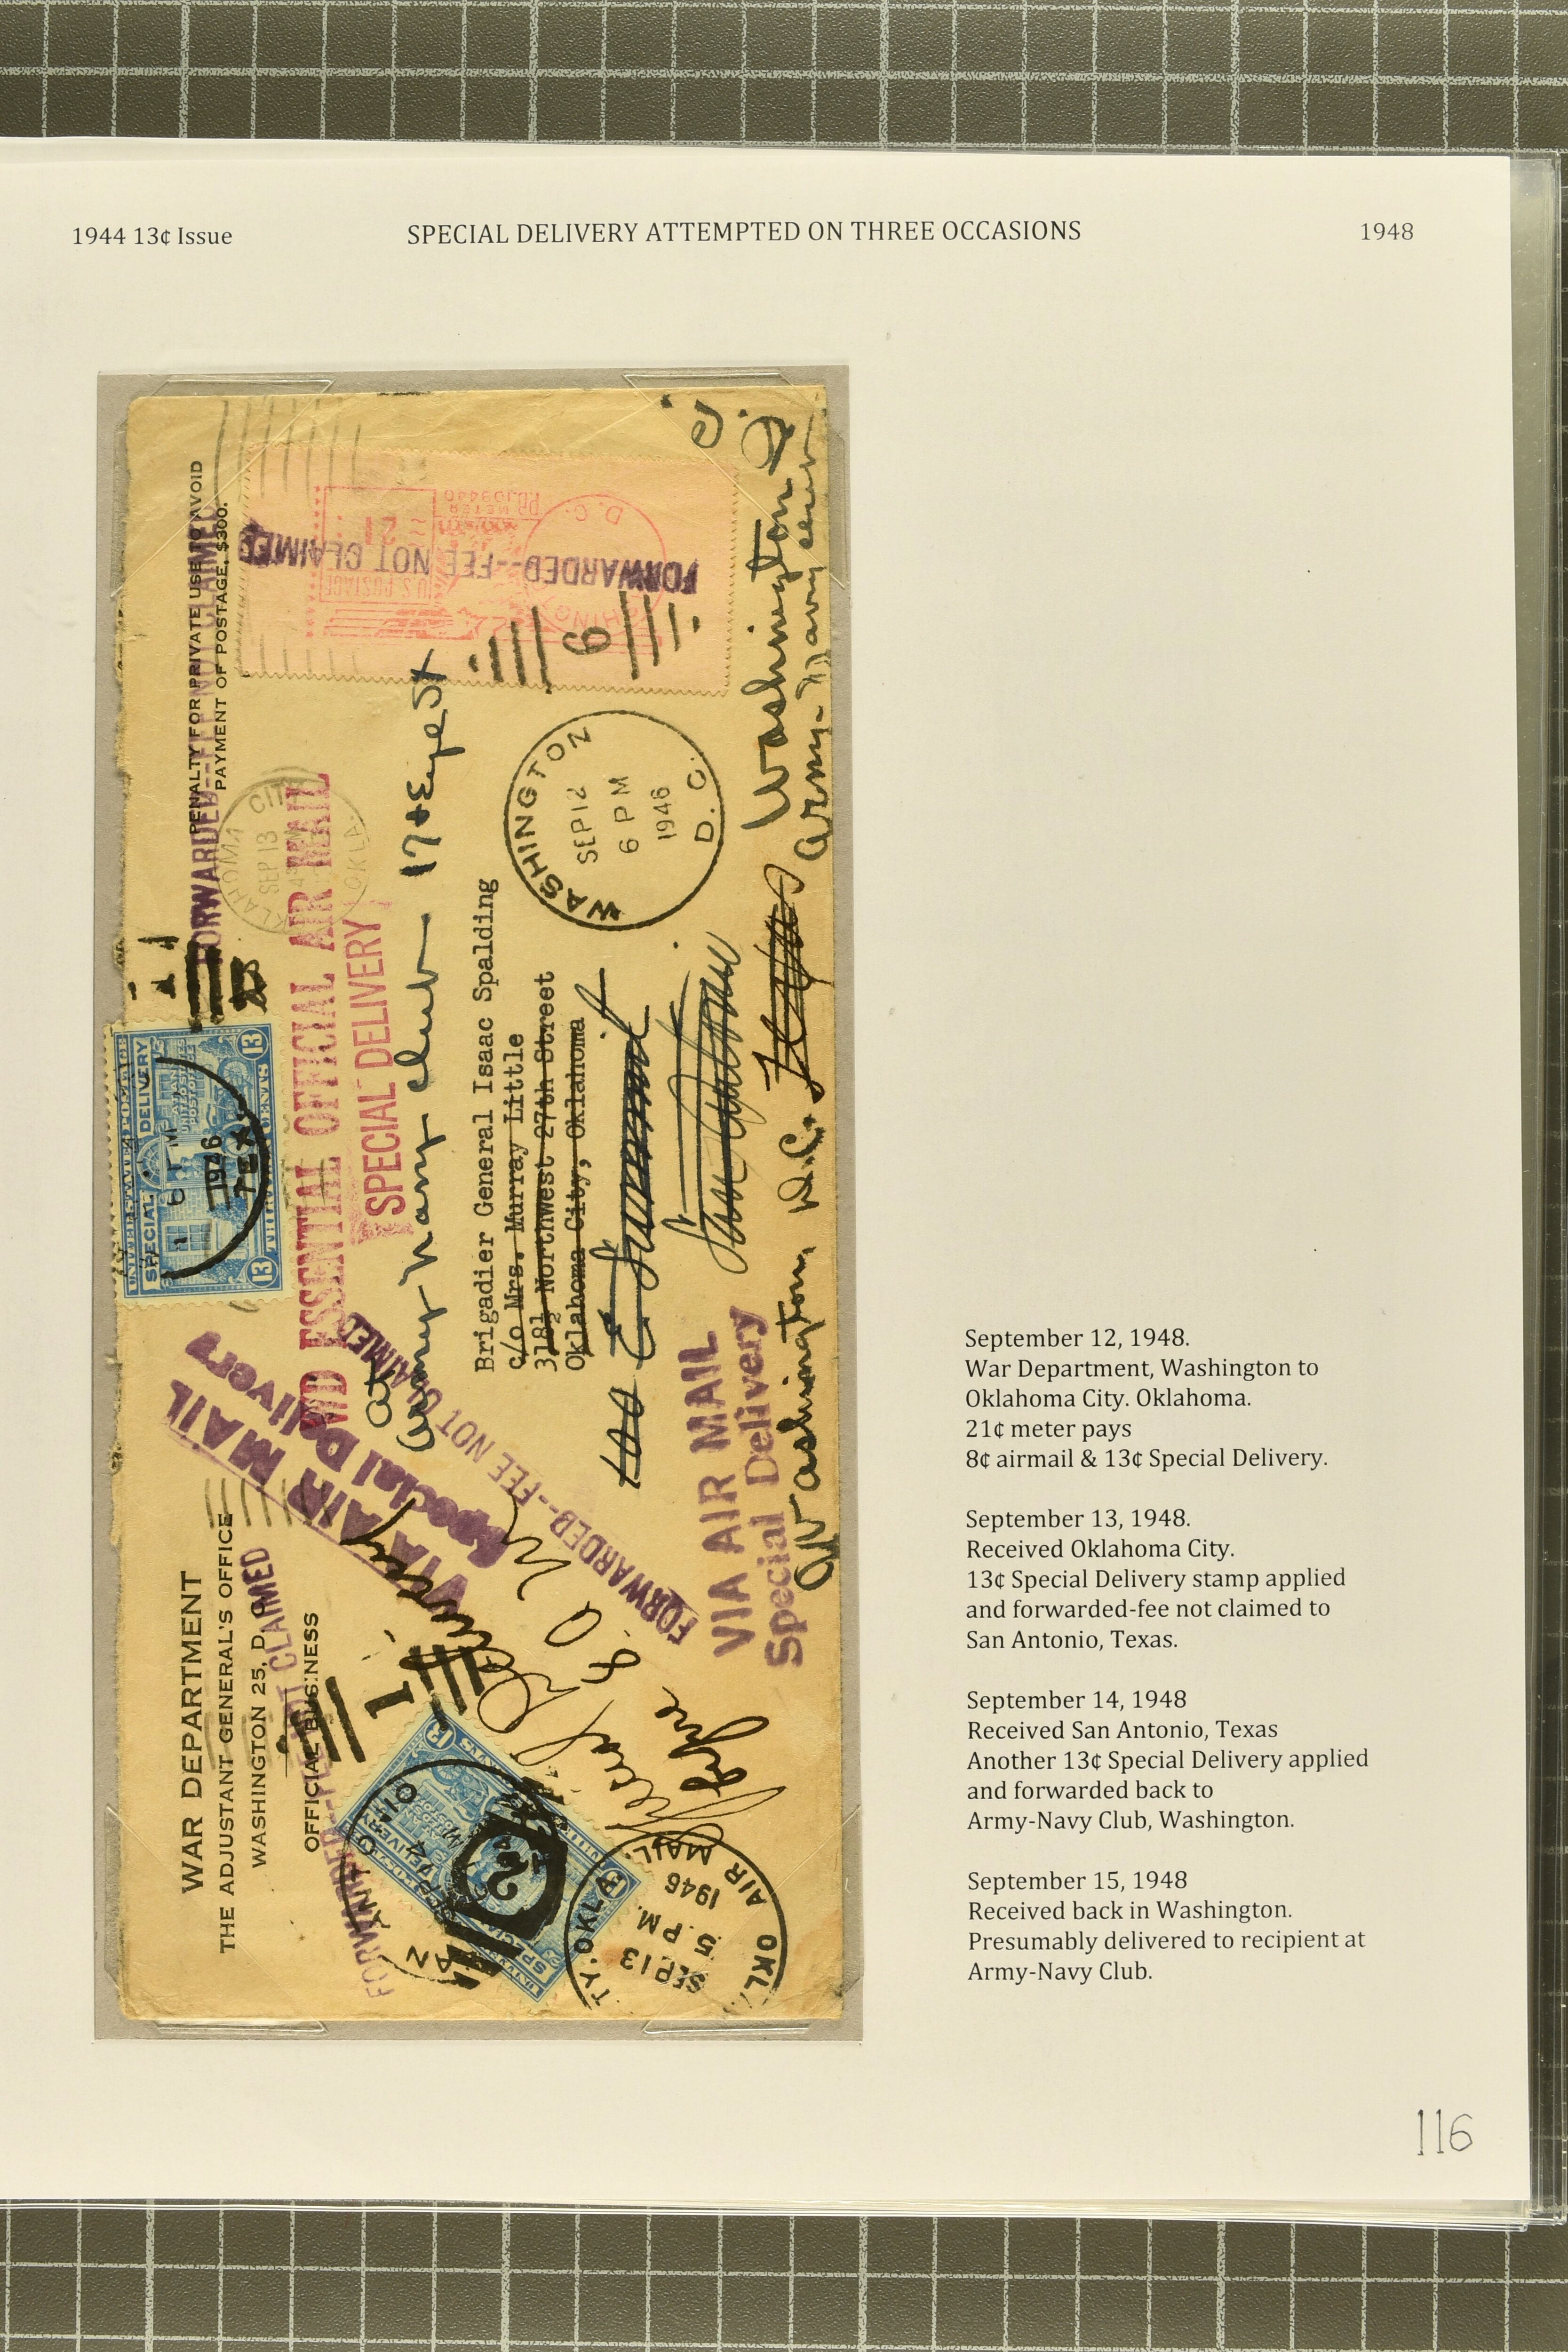 1944 13¢ Issue
SPECIAL DELIVERY ATTEMPTED ON THREE OCCASIONS
1948
WAR DEPARTMENT
THE ADJUSTANT GENERAL'S OFFICE
WASHINGTON 25, D.
OFFICIAL BUSINESS
PENALTY FOR PRIVATE USE TO AVOID
PAYMENT OF POSTAGE, $300.
FORWARDED--FEE NOT CLAIMED
FORWARDED--FEE NOT CLAIMED
FORWARDED--FEE NOT CLAIMED
FORWARDED--FEE NOT CLAIMED
WD ESSENTIAL OFFICIAL AIR MAIL
SPECIAL DELIVERY
VIA AIR MAIL
Special Delivery
VIA AIR MAIL
Special Delivery
UNITED STATES POSTAGE
SPECIAL DELIVERY
13 THIRTEEN CENTS 13
6 PM
1946
TEX
OKLAHOMA CITY
SEP 13
OKLA.
Army Navy Club - 17 + Eye St
Brigadier General Isaac Spalding
c/o Mrs. Murray Little
318½ Northwest 27th Street
Oklahoma City, Oklahoma
WASHINGTON
SEP 12
6 PM
1946
D. C.
U.S. POSTAGE
21
D. C.
6
San Antonio
Texas
Washington D. C.
Washington D.C.
Army-Navy Club
Special
SEP 14
1
2
OKLA. CITY. OKLA.
SEP 13
5 PM.
1946
AIR MAIL
September 12, 1948.
War Department, Washington to
Oklahoma City. Oklahoma.
21¢ meter pays
8¢ airmail & 13¢ Special Delivery.
September 13, 1948.
Received Oklahoma City.
13¢ Special Delivery stamp applied
and forwarded-fee not claimed to
San Antonio, Texas.
September 14, 1948
Received San Antonio, Texas
Another 13¢ Special Delivery applied
and forwarded back to
Army-Navy Club, Washington.
September 15, 1948
Received back in Washington.
Presumably delivered to recipient at
Army-Navy Club.
116